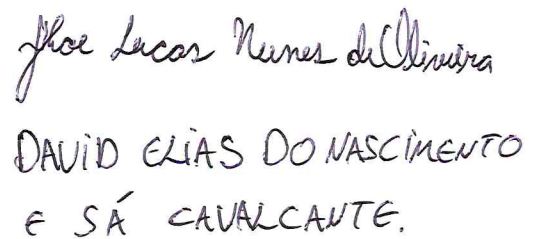 Jhoe Lucas Nunes de Oliveira
DAVID ELIAS DO NASCIMENTO
E SÁ CAVALCANTE.